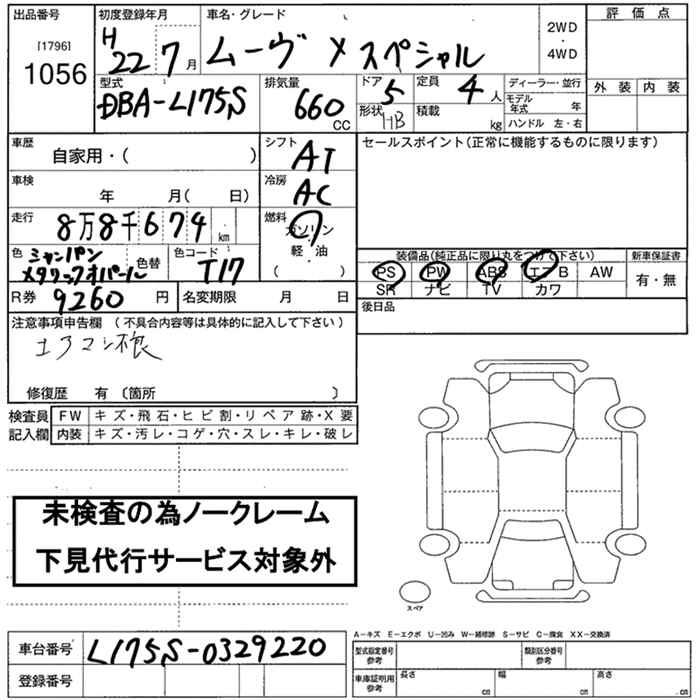 出品番号 初度登録年月 車名・グレード 評価点
[1796]
1056
H22 7月 ムーヴ Xスペシャル 2WD・4WD
外装 内装
型式 排気量 ドア 5 定員 4人 ディーラー・並行
DBA-L175S 660CC 形状 HB 積載 kg モデル年式 年
ハンドル 左・右
車歴 自家用・( ) シフト AT セールスポイント(正常に機能するものに限ります)
車検 年 月( 日) 冷房 AC
走行 8万8千674km 燃料 ガソリン
軽・油
( )
色 シャンパンメタリックオパール 色替 色コード T17
装備品(純正品に限り丸をつけて下さい) 新車保証書
PS PW ABS エアB AW 有・無
SR ナビ TV カワ
R券 9260円 名変期限 月 日 後日品
注意事項申告欄 (不具合内容等は具体的に記入して下さい)
エアコン不良
修復歴 有〔箇所 〕
検査員 FW キズ・飛石・ヒビ割・リペア跡・X要
記入欄 内装 キズ・汚レ・コゲ・穴・スレ・キレ・破レ
未検査の為ノークレーム
下見代行サービス対象外
スペア
A-キズ E-エクボ U-凹み W-補修跡 S-サビ C-腐食 XX-交換済
車台番号 L175S-0329220 型式指定番号 参考 類別区分番号 参考
登録番号 車庫証明用 参考 長さ cm 幅 cm 高さ cm